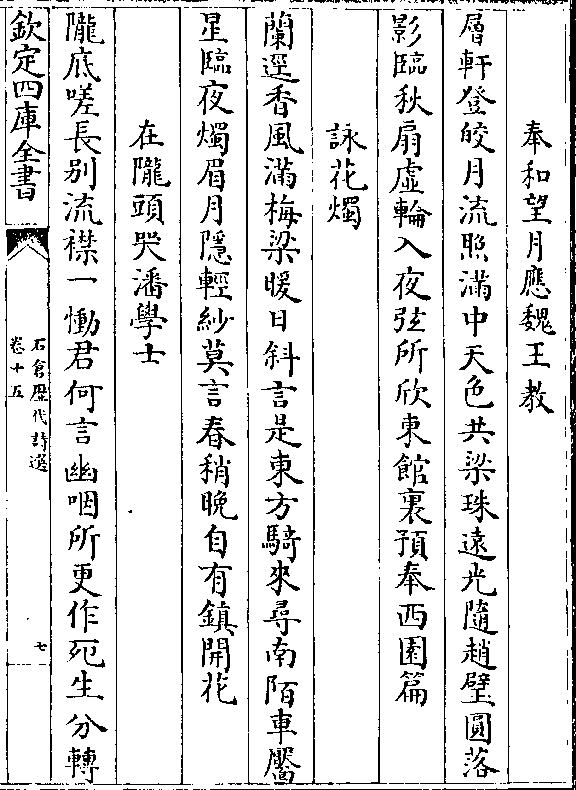 奉和望月應魏王教
層軒登皎月流照滿中天色共梁珠遠光隨趙璧圓落
影臨秋扇虛輪入夜弦所欣東館裏預奉西園篇
詠花燭
蘭逕香風滿梅梁暖日斜言是東方騎來尋南陌車靨
星臨夜燭眉月隱輕紗莫言春稍晚自有鎮開花
在隴頭哭潘學士
隴底嗟長别流襟一慟君何言幽咽所更作死生分轉
欽定四庫全書
石倉歴代詩選
卷十五
七